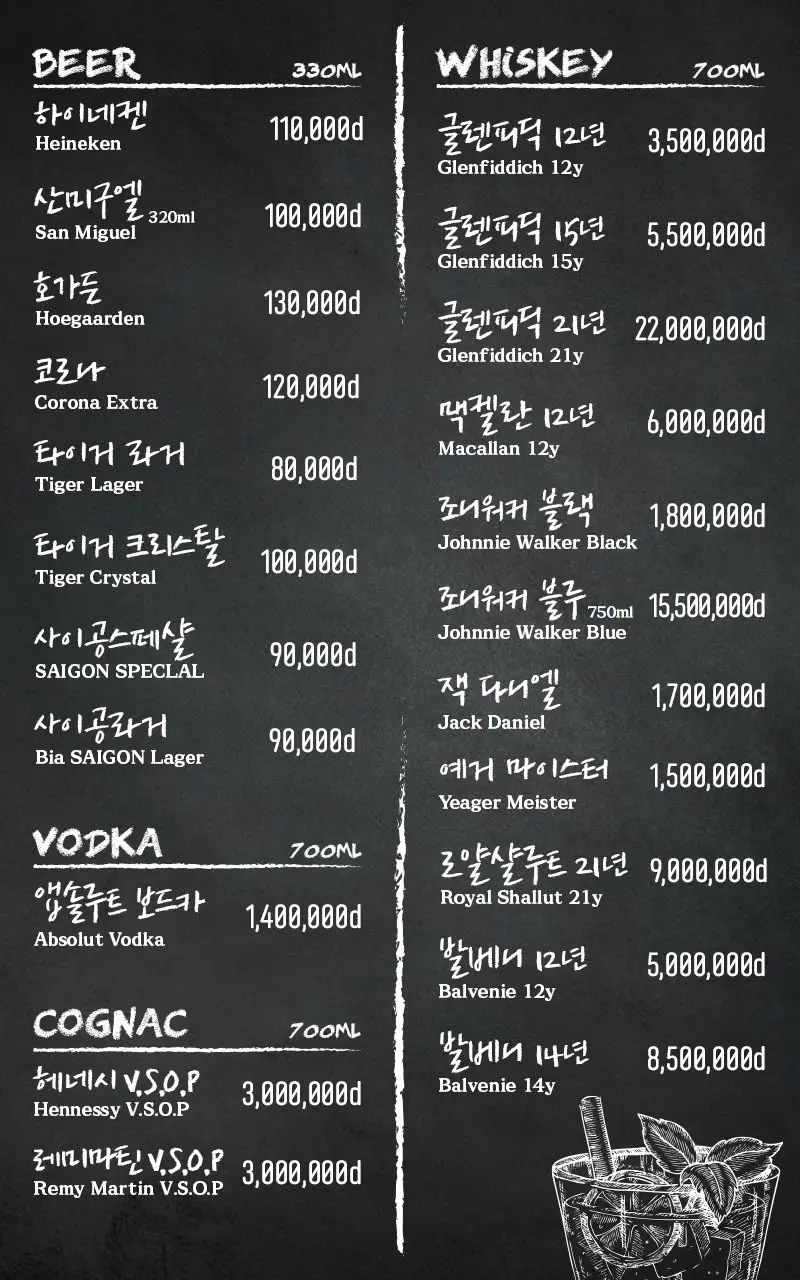 BEER 330ML
하이네켄 110,000đ
Heineken
산미구엘 320ml 100,000đ
San Miguel
호가든 130,000đ
Hoegaarden
코로나 120,000đ
Corona Extra
타이거 라거 80,000đ
Tiger Lager
타이거 크리스탈 100,000đ
Tiger Crystal
사이공스페샬 90,000đ
SAIGON SPECLAL
사이공라거 90,000đ
Bia SAIGON Lager
VODKA 700ML
앱솔루트 보드카 1,400,000đ
Absolut Vodka
COGNAC 700ML
헤네시 V.S.O.P 3,000,000đ
Hennessy V.S.O.P
레미마틴 V.S.O.P 3,000,000đ
Remy Martin V.S.O.P
WHiSKEY 700ML
글렌피딕 12년 3,500,000đ
Glenfiddich 12y
글렌피딕 15년 5,500,000đ
Glenfiddich 15y
글렌피딕 21년 22,000,000đ
Glenfiddich 21y
맥켈란 12년 6,000,000đ
Macallan 12y
조니워커 블랙 1,800,000đ
Johnnie Walker Black
조니워커 블루 750ml 15,500,000đ
Johnnie Walker Blue
잭 다니엘 1,700,000đ
Jack Daniel
예거 마이스터 1,500,000đ
Yeager Meister
로얄샬루트 21년 9,000,000đ
Royal Shallut 21y
발베니 12년 5,000,000đ
Balvenie 12y
발베니 14년 8,500,000đ
Balvenie 14y